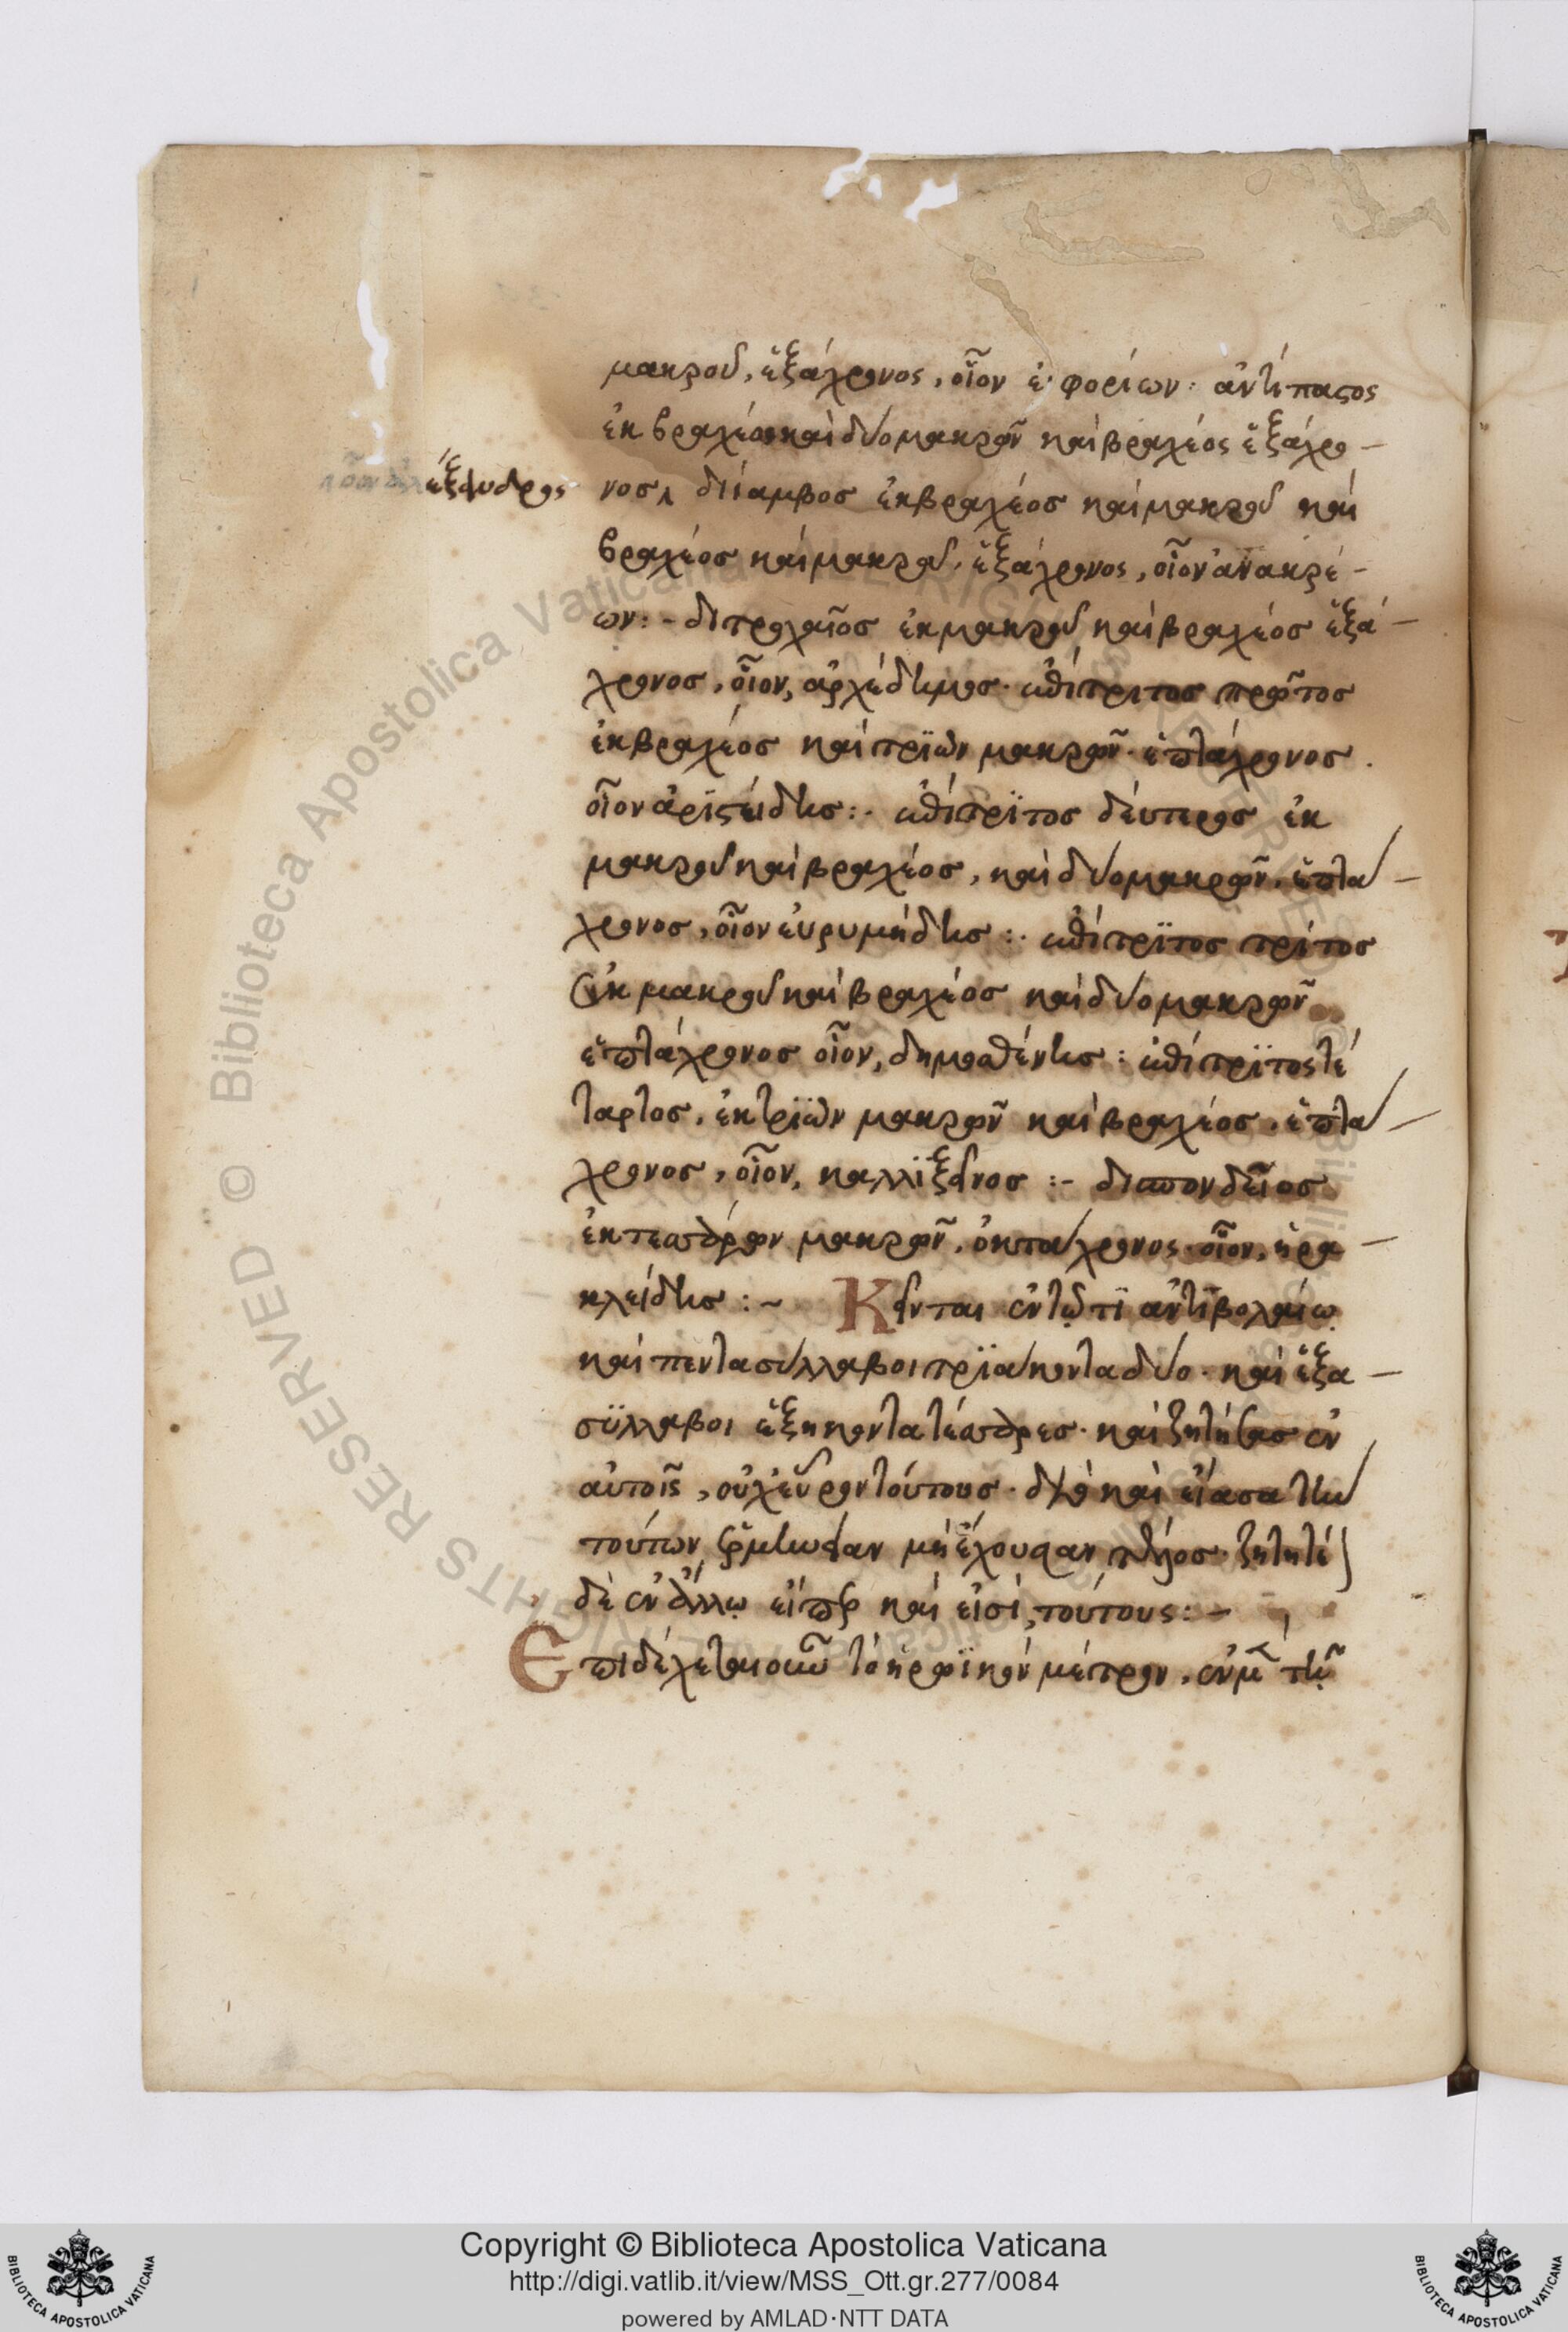 μακροῦ, ἑξάχρονος, οἷον ἐφορίων: ἀντίπαστος
ἐκ βραχέος καὶ δύο μακρῶν καὶ βραχέος ἑξάχρο-
νος διίαμβος ἐκ βραχέος καὶ μακροῦ καὶ
βραχέος καὶ μακροῦ, ἑξάχρονος, οἷον ἀνακρέ-
ων:- διτροχαῖος ἐκ μακροῦ καὶ βραχέος ἑξά-
χρονος, οἷον, ἀρχέδημος· ἐπίτριτος πρῶτος
ἐκ βραχέος καὶ τριῶν μακρῶν· ἑπτάχρονος.
οἷον ἀριστείδης:· ἐπίτριτος δεύτερος ἐκ
μακροῦ καὶ βραχέος, καὶ δύο μακρῶν, ἑπτα-
χρονος, οἷον εὐρυμήδης:· ἐπίτριτος τρίτος
ἐκ μακροῦ καὶ βραχέος καὶ δύο μακρῶν
ἑπτάχρονος οἷον, δημοσθένης: ἐπίτριτος τέ
ταρτος, ἐκ τριῶν μακρῶν καὶ βραχέος, ἑπτα-
χρονος, οἷον, καλλίξεινος:- δισπονδεῖος
ἐκ τεσσάρων μακρῶν, ὀκτάχρονος· οἷον, ἡρα-
κλείδης:~ Κεῖνται ἔν τῳ τι ἀντιβολαίῳ
καὶ πεντασύλλαβοι τριάκοντα δύο· καὶ ἑξα-
σύλλαβοι ἑξήκοντα τέσσαρες· καὶ ζητήσας ἐν
αὐτοῖς, οὐχ εὗρον τούτους· διὸ καὶ εἴασα τὴν
τούτων ἑρμηνείαν μὴ ἔχουσαν τέλος· ζητητέ
δὲ ἐν ἄλλῳ εἴπερ καὶ εἰσὶ, τούτους:-
Ἐπιδέχεται οὖν τὸ ἡρωϊκὸν μέτρον, ἐν μὲν τῇ
ἐξφυδρος
http://digi.vatlib.it/view/MSS_Ott.gr.277/0084
Copyright © Biblioteca Apostolica Vaticana
powered by AMLAD·NTT DATA
BIBLIOTECA APOSTOLICA VATICANA
BIBLIOTECA APOSTOLICA VATICANA